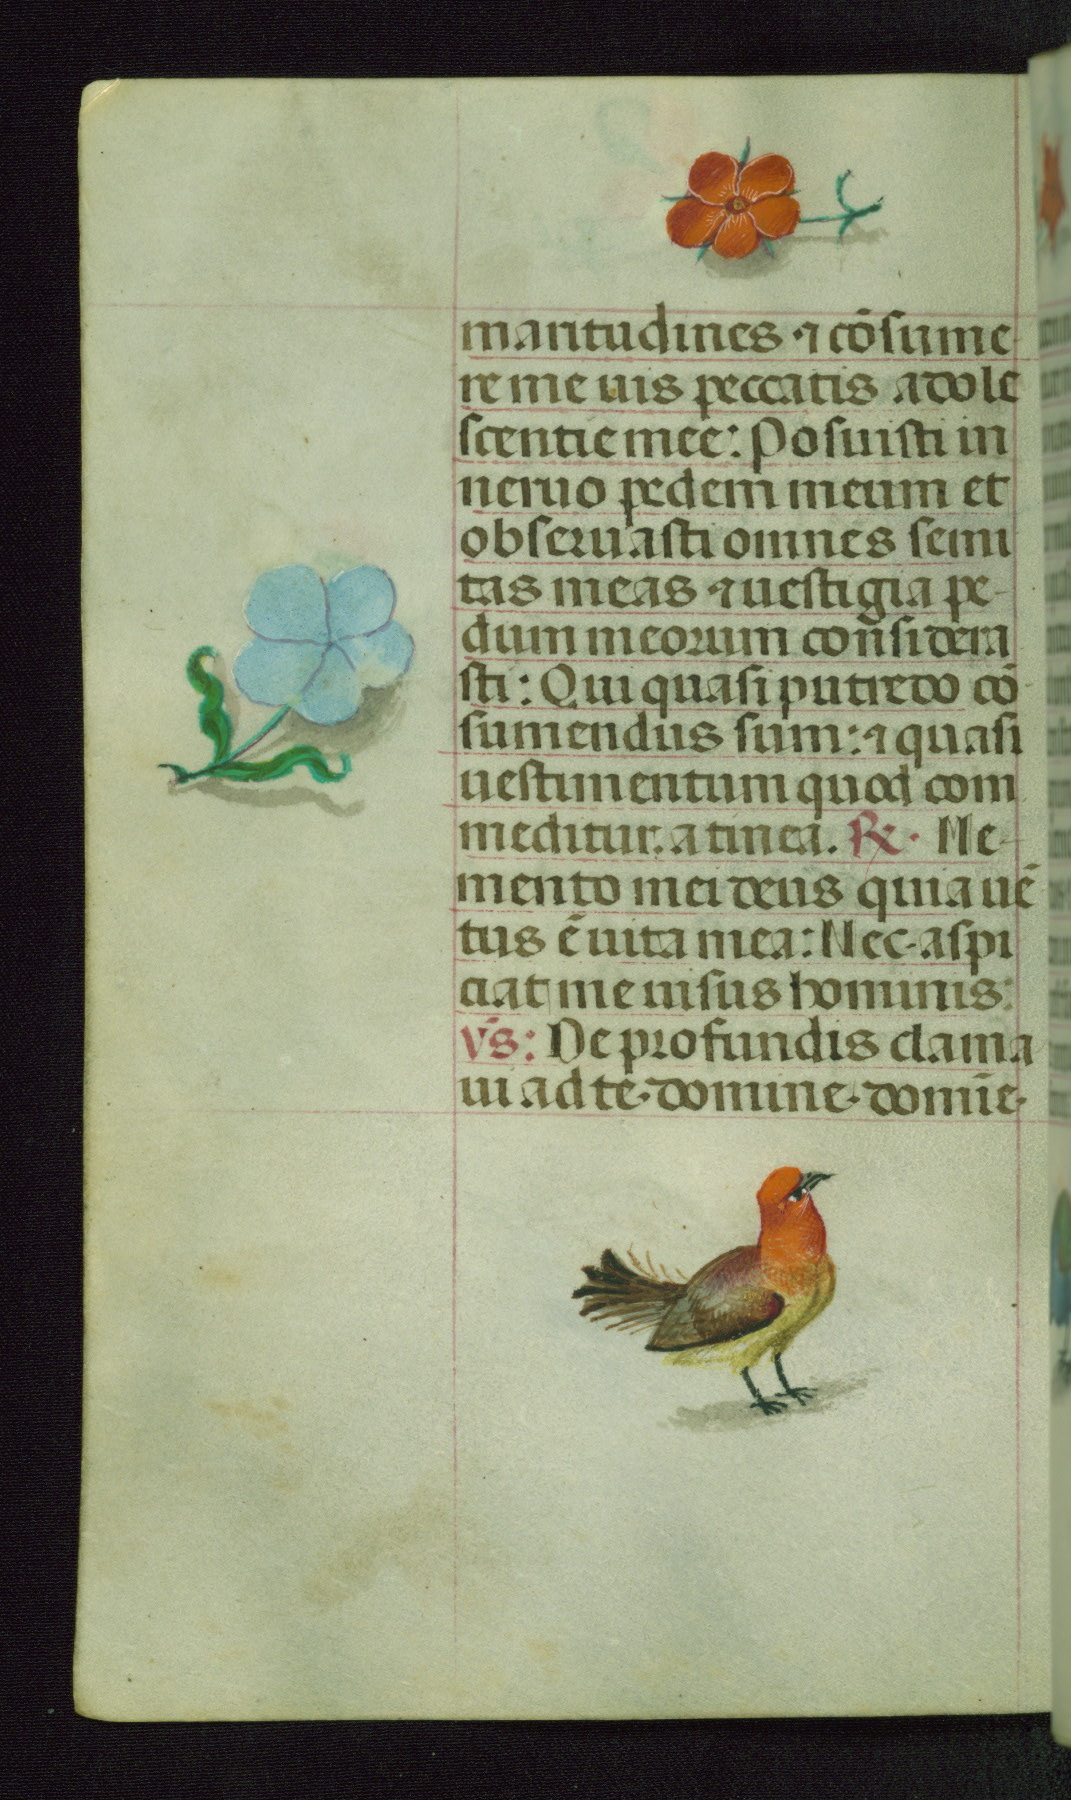 maritudines · ⁊ cōsume
re me uis peccatis adole
scentie mee: Posuisti in
neruo pedem meum et
obseruasti omnes semi
tas meas ⁊ uestigia pe-
dum meorum considera
sti: Qui quasi putredo cō
sumendus sum: ⁊ quasi
uestimentum quod com
meditur. a tinea. ℞. Me-
mento mei deus quia uē
tus ē uita mea: Nec aspi
ciat me uisus hominis:
v̄s: De profundis clama
ui ad te · domine · domīe ·